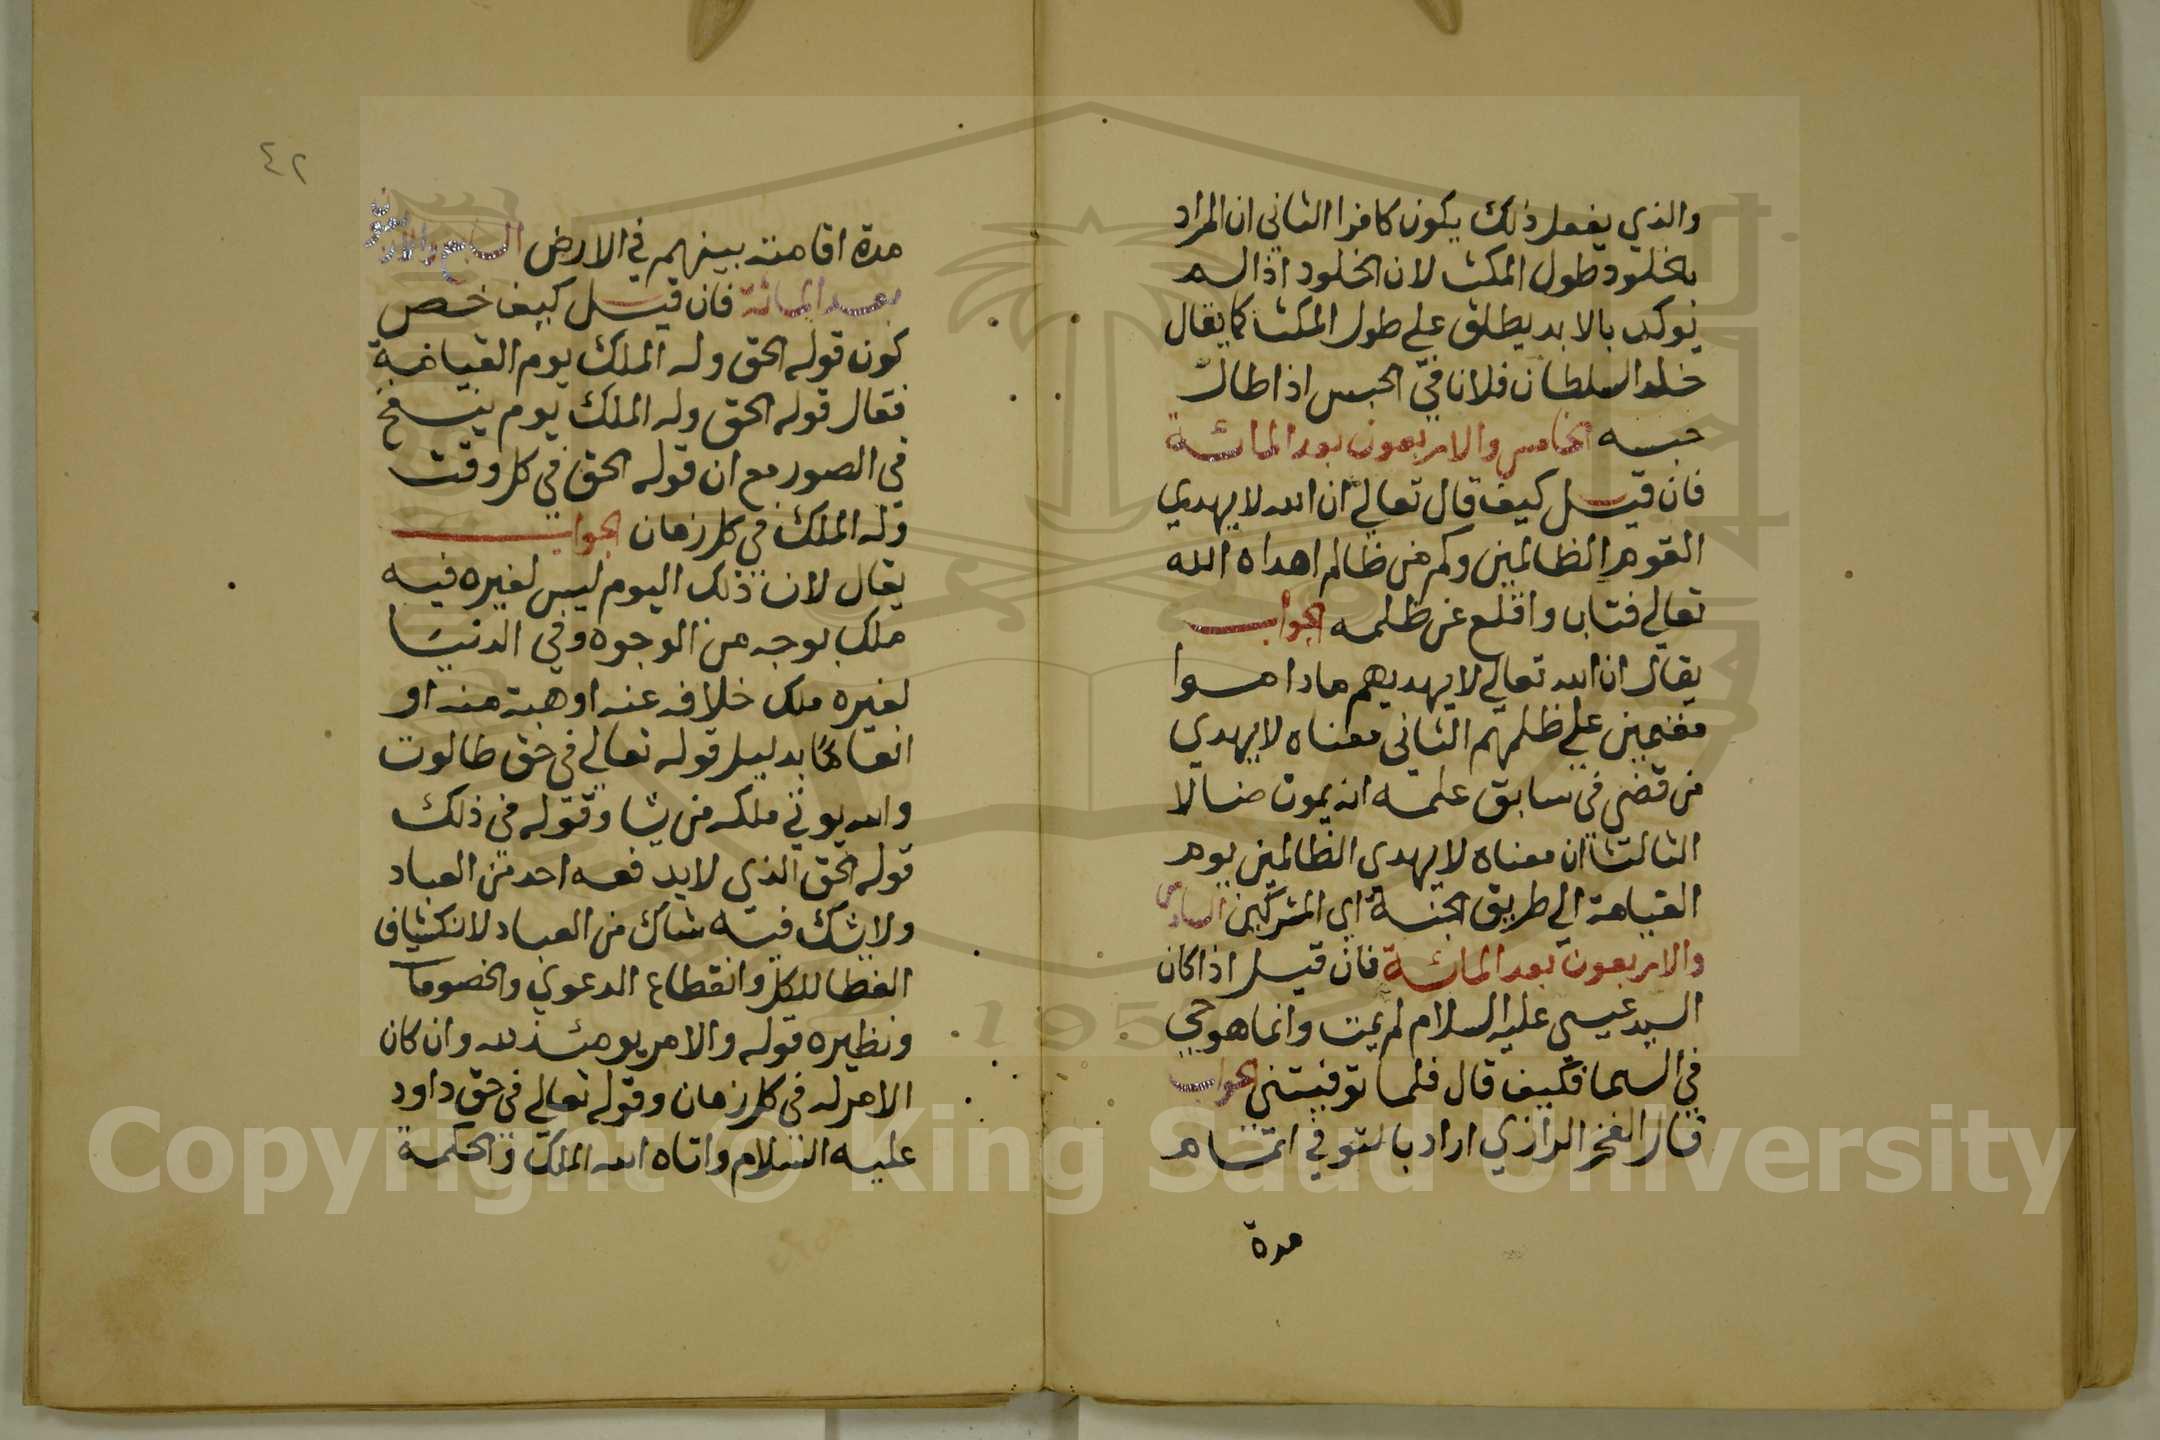 والذي يفعل ذلك يكون كافرا الثاني ان المراد
بالخلود طول المكث لان الخلود اذا لم
يوكد بالابد يطلق علي طول المكث كما يقال
خلد السلطان فلانا في الحبس اذا طالت
حبسه الخامس والاربعون بعد المائة
فان قيل كيف قال تعالي ان الله لا يهدي
القوم الظالمين وكم من ظالم اهداه الله
تعالي فتاب واقلع عن ظلمه الجواب
يقال ان الله تعالي لا يهديهم ماداموا
مقيمين علي ظلمهم الثاني معناه لا يهدي
من قضي في سابق علمه انه يموت ضالا
الثالث ان معناه لا يهدي الظالمين يوم
القيامة الي طريق الجنة اي المشركين السادس
والاربعون بعد المائة فان قيل اذا كان
السيد عيسي عليه السلام لم يمت وانما هو حي
في السما فكيف قال فلما توفيتني الجواب
قال الفخر الرازي اراد بالتوفي اتمام
مدة
٤٢
مدة اقامته بينهم في الارض السابع والاربعون
بعد المائة فان قيل كيف خص
كون قوله الحق وله الملك يوم القيامة
فقال قوله الحق وله الملك يوم ينفخ
في الصور مع ان قوله الحق في كل وقت
وله الملك في كل زمان الجواب
يقال لان ذلك اليوم ليس لغيره فيه
ملك بوجه من الوجوه وفي الدنيا
لغيره ملك خلافه عنه او هبة منه او
انعاما بدليل قوله تعالي في حق طالوت
والله يوتي ملكه من يشا وقوله في ذلك
قوله الحق الذي لا يدفعه احد من العباد
ولا يشك فيه شاك من العباد لانكشاف
الغطا للكل وانقطاع الدعوي والخصومات
ونظيره قوله والامر يومئذ لله وان كان
الامر له في كل زمان وقوله تعالي في حق داود
عليه السلام واتاه الله الملك والحكمة
Copyright © King Saud University
195